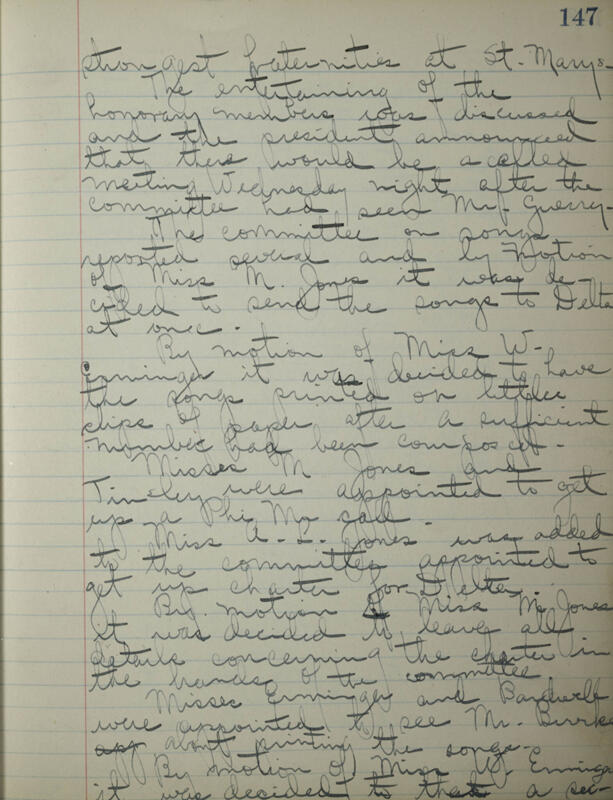 147
strongest fraternities at St. Marys-
The entertaining of the
honorary members was discussed
and the president announced
that there would be a called
meeting Wednesday night after the
committee had seen Mr. Guerry-
The committee on songs
reported several and by motion
of Miss M. Jones it was de
cided to send the songs to Delta
at once.
By motion of Miss W-
Erminger it was decided to have
the songs printed on little
slips of paper after a sufficient
number had been composed-
Misses M Jones and
Tinsley were appointed to get
up a Phi Mu call-
Miss A. L. Jones was added
to the committee appointed to
get up charter for Delta.
By motion of Miss M. Jones
it was decided to leave all
details concerning the charter in
the hands of the committee
Misses Erminger and Bardwell
were appointed to see Mr. Burke
about printing the songs-
By motion of Miss W. Erminger
it was decided to that a sec-